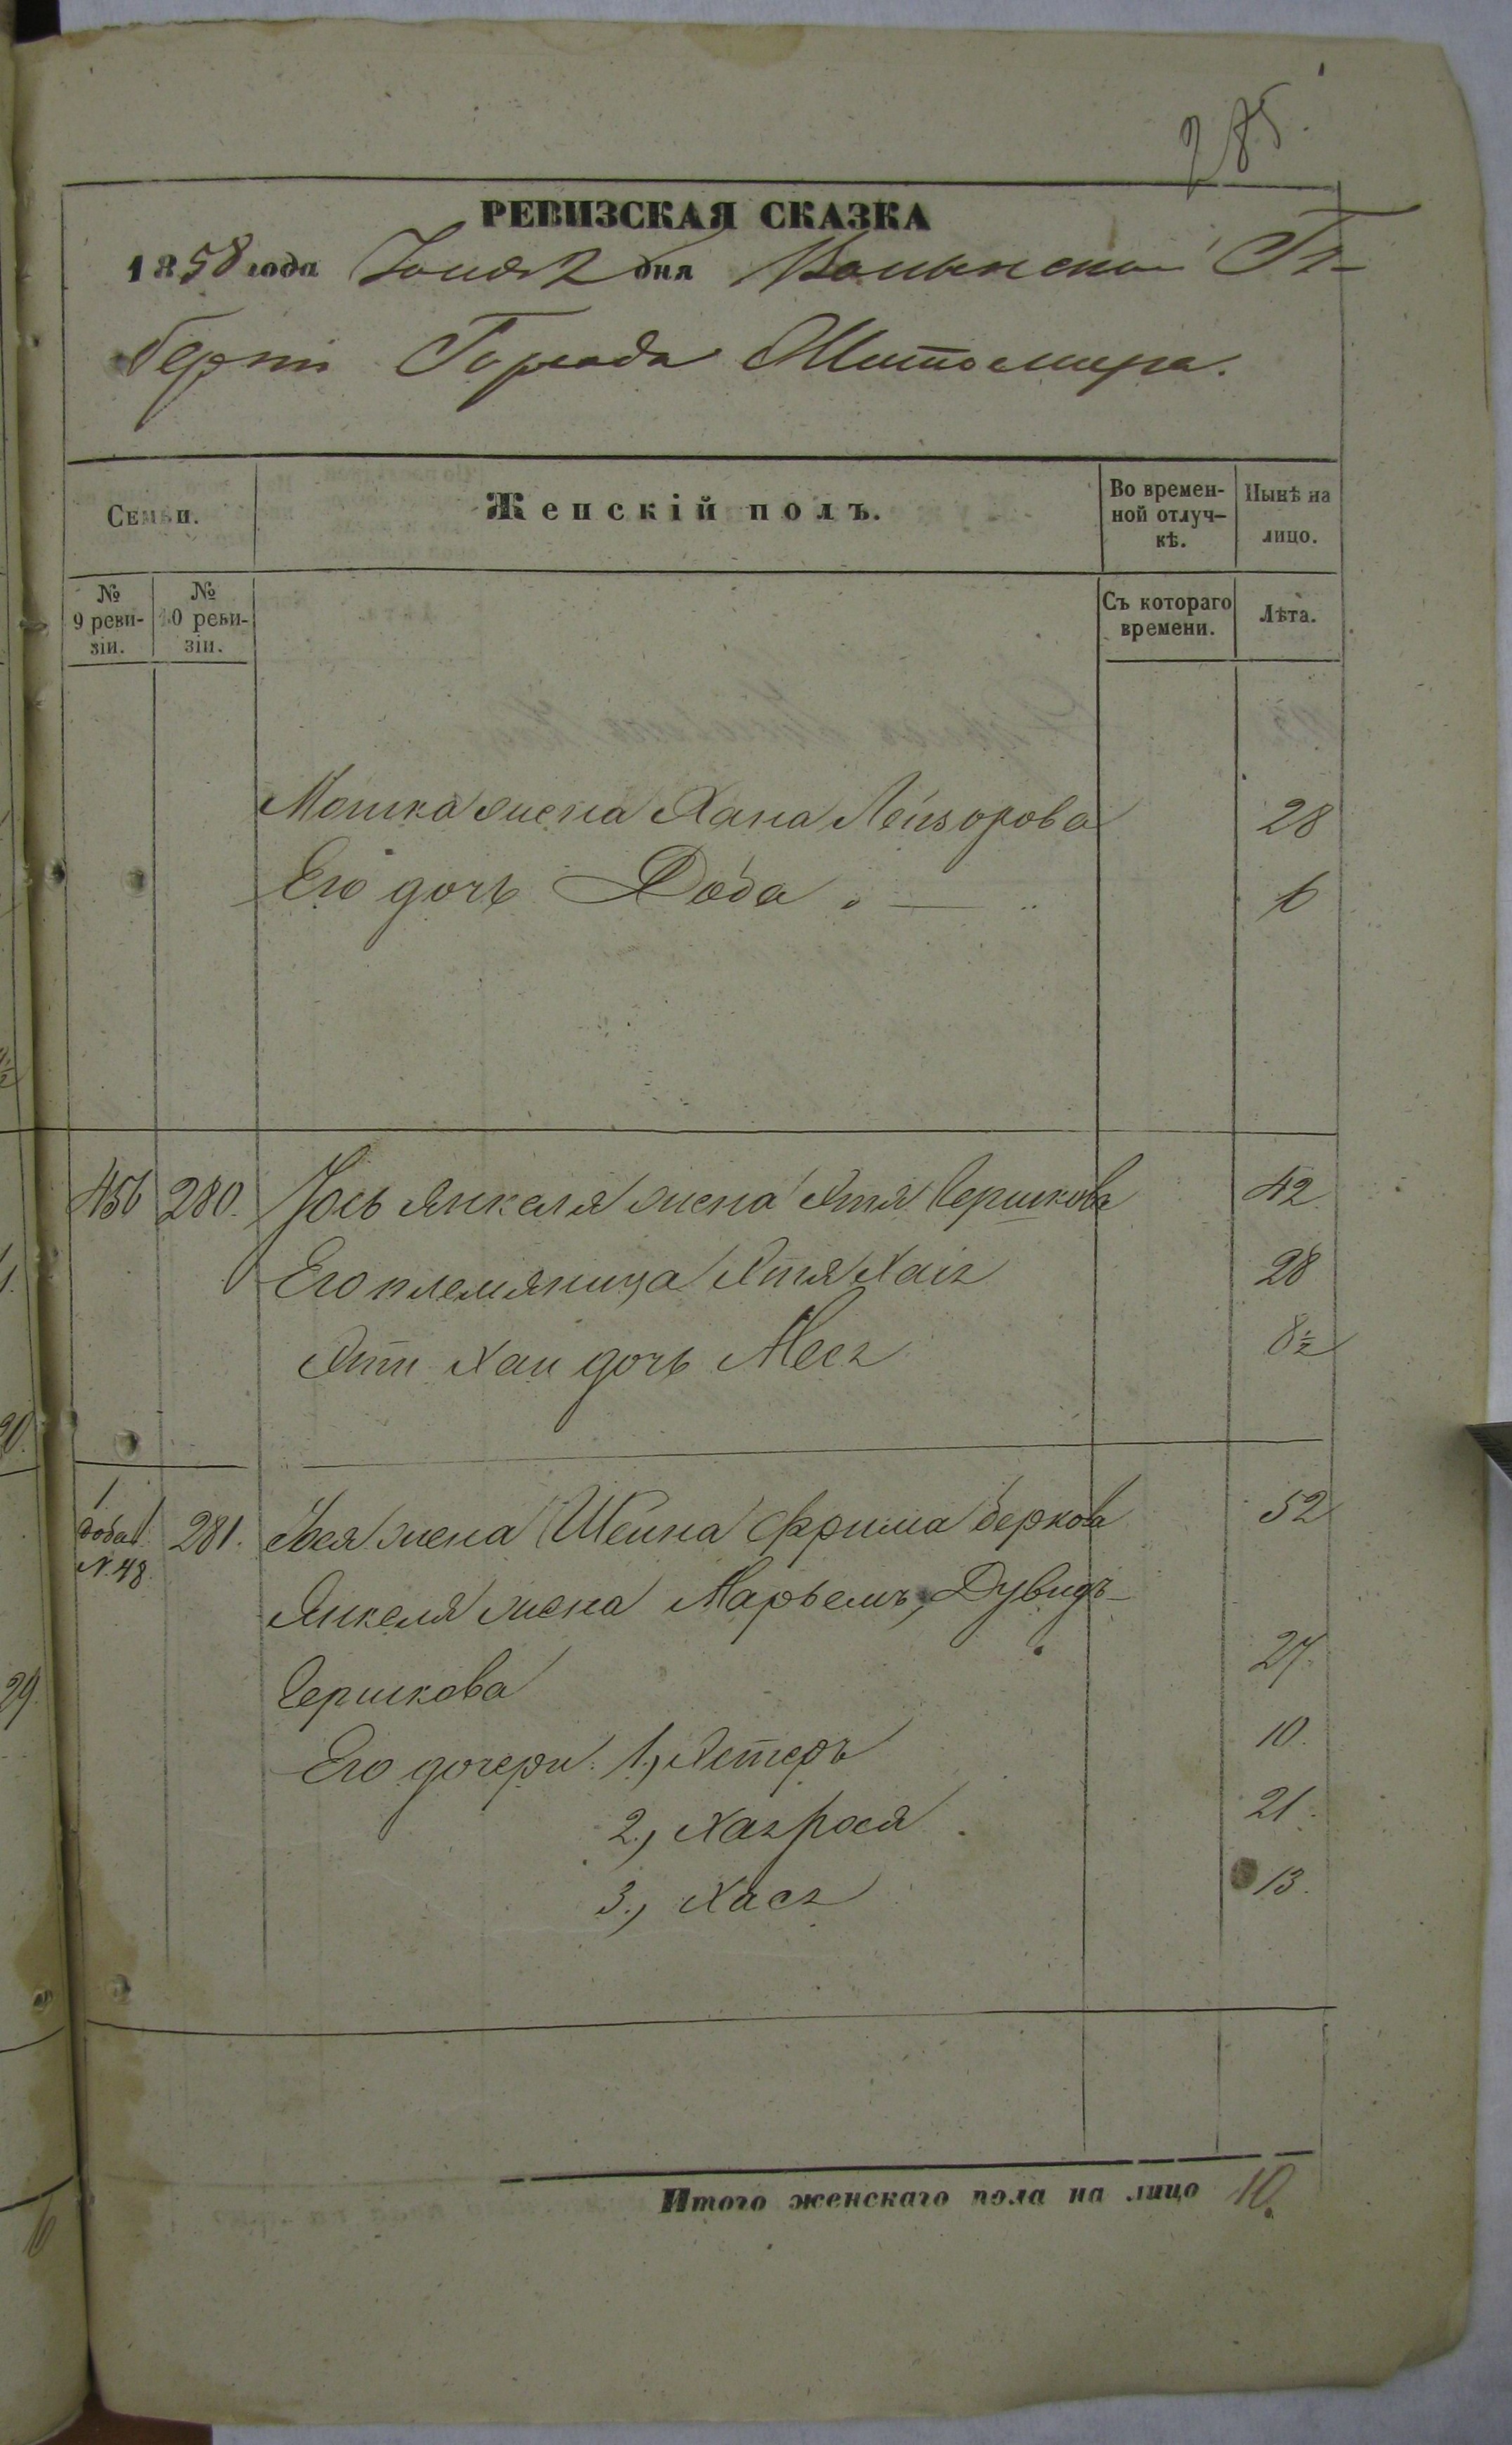 285.
РЕВИЗСКАЯ СКАЗКА
1858 года Іюня 2 дня Волынской Гу-
берніи Города Житомира.
Семьи.
Женскій полъ.
Во времен-
ной отлуч-
кѣ.
Нынѣ на
лицо.
№
9 реви-
зіи.
№
10 реви-
зіи.
Съ котораго
времени.
Лѣта.
Мошка жена Хана Лейзорова 28
Его дочь Доба 6
456 280. Іось Янкеля жена Этя Гершкова 42
Его племяница Этя Хая 28
Эти Хаи дочь Неся 8½
1
добав.
N. 48.
281. жена Шейна Фрима Беркова 52
Янкеля жена Марьемъ, Дувидъ-
Гершкова 27.
Его дочери: 1., Эстеръ 10.
2., Хая Рося 21.
3., Хася 13.
Итого женскаго пола на лицо 10.